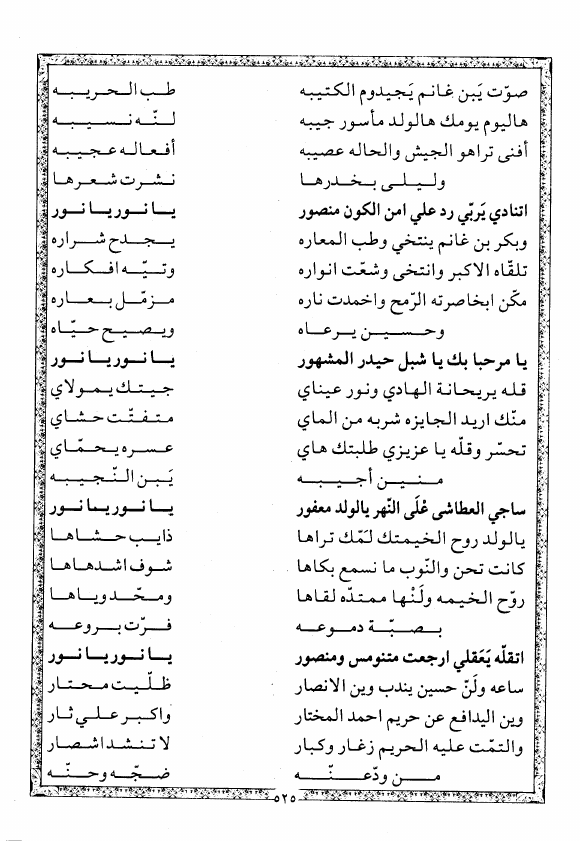 صوّت يَبن غانم يَجيدوم الكتيبه طب الحريبه
هاليوم يومك هالولد مأسور جيبه لنّه نسيبه
أفنى تراهو الجيش والحاله عصيبه أفعاله عجيبه
وليلى بخدرها نشرت شعرها
اتنادي يَربّي رد علي امن الكون منصور يا نور يا نور
وبكر بن غانم ينتخي وطب المعاره يجدح شراره
تلقّاه الاكبر وانتخى وشعّت انواره وتيّه افكاره
مكّن ابخاصرته الرّمح واخمدت ناره مزمّل بعاره
وحسين يرعاه ويصيح حيّاه
يا مرحبا بك يا شبل حيدر المشهور يا نور يا نور
قله يريحانة الهادي ونور عيناي جيتك يمولاي
منّك اريد الجايزه شربه من الماي متفتّت حشاي
تحسّر وقلّه يا عزيزي طلبتك هاي عسره يحمّاي
منين أجيبه يَبن النّجيبه
ساجي العطاشى عُلَى النّهر يالولد معفور يا نور يا نور
يالولد روح الخيمتك لمّك تراها ذايب حشاها
كانت تحن والنّوب ما نسمع بكاها شوف اشدهاها
روّح الخيمه ولَنْها ممتدّه لقاها ومخّد وياها
بصبّة دموعه فرّت بروعه
اتقلّه يَعَقلي ارجعت متنومس ومنصور يا نور يا نور
ساعه ولَنّ حسين يندب وين الانصار ظلّيت محتار
وين اليدافع عن حريم احمد المختار واكبر علي ثار
والتمّت عليه الحريم زغار وكبار لا تنشد اشصار
من ودّعنّه ضجّه وحنّه
٥٢٥